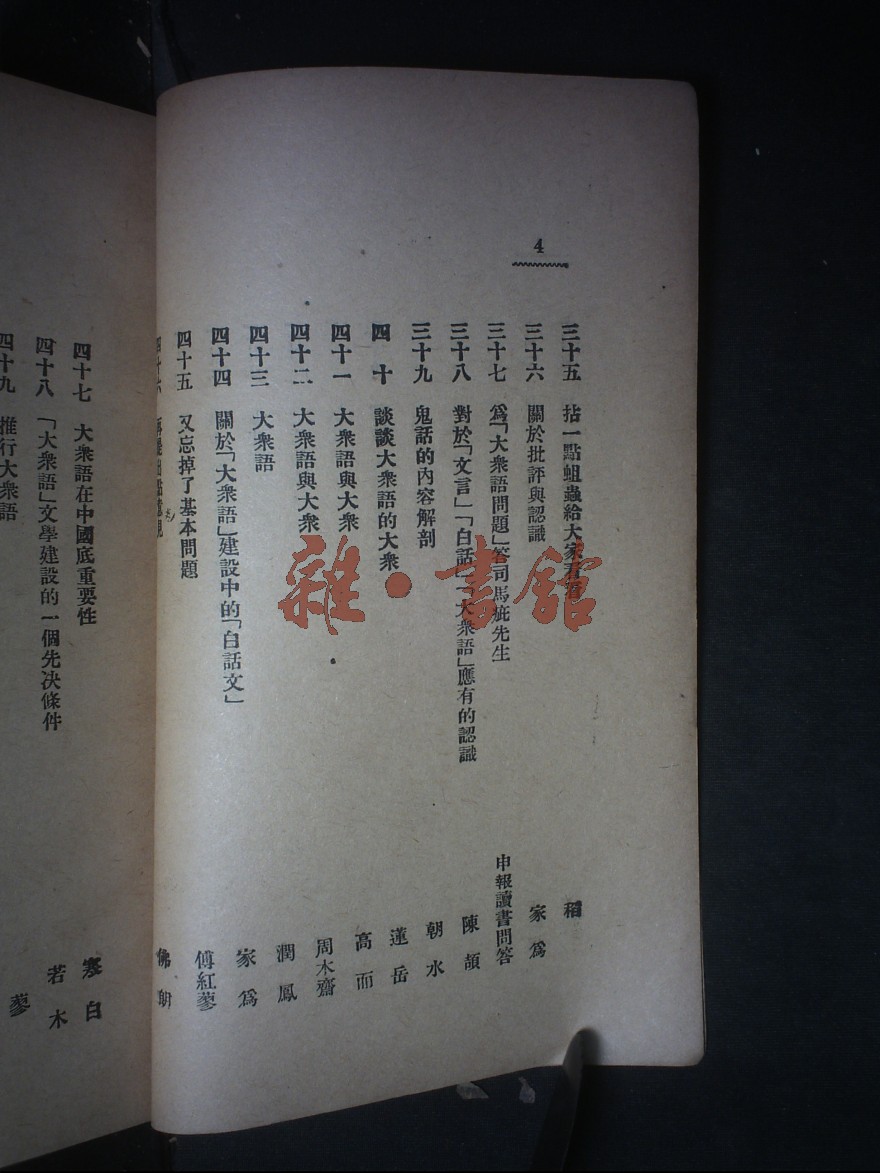 4
三十五 拈一點蛆蟲給大家看看 稻
三十六 關於批評與認識 家為
三十七 爲「大衆語問題」答司馬疵先生 申報讀書問答
三十八 對於「文言」「白話」「大衆語」應有的認識 陳頡
三十九 鬼話的內容解剖 朝水
四十 談談大衆語的大衆 蓮岳
四十一 大衆語與大衆 高而
四十二 大衆語與大衆 周木齋
四十三 大衆語 潤鳳
四十四 關於「大衆語」建設中的「白話文」 家爲
四十五 又忘掉了基本問題 傅紅蓼
四十六 再提出點意見 佛朗
四十七 大衆語在中國底重要性 寒白
四十八 「大衆語」文學建設的一個先決條件 若木
四十九 推行大衆語 蓼
雜·書館